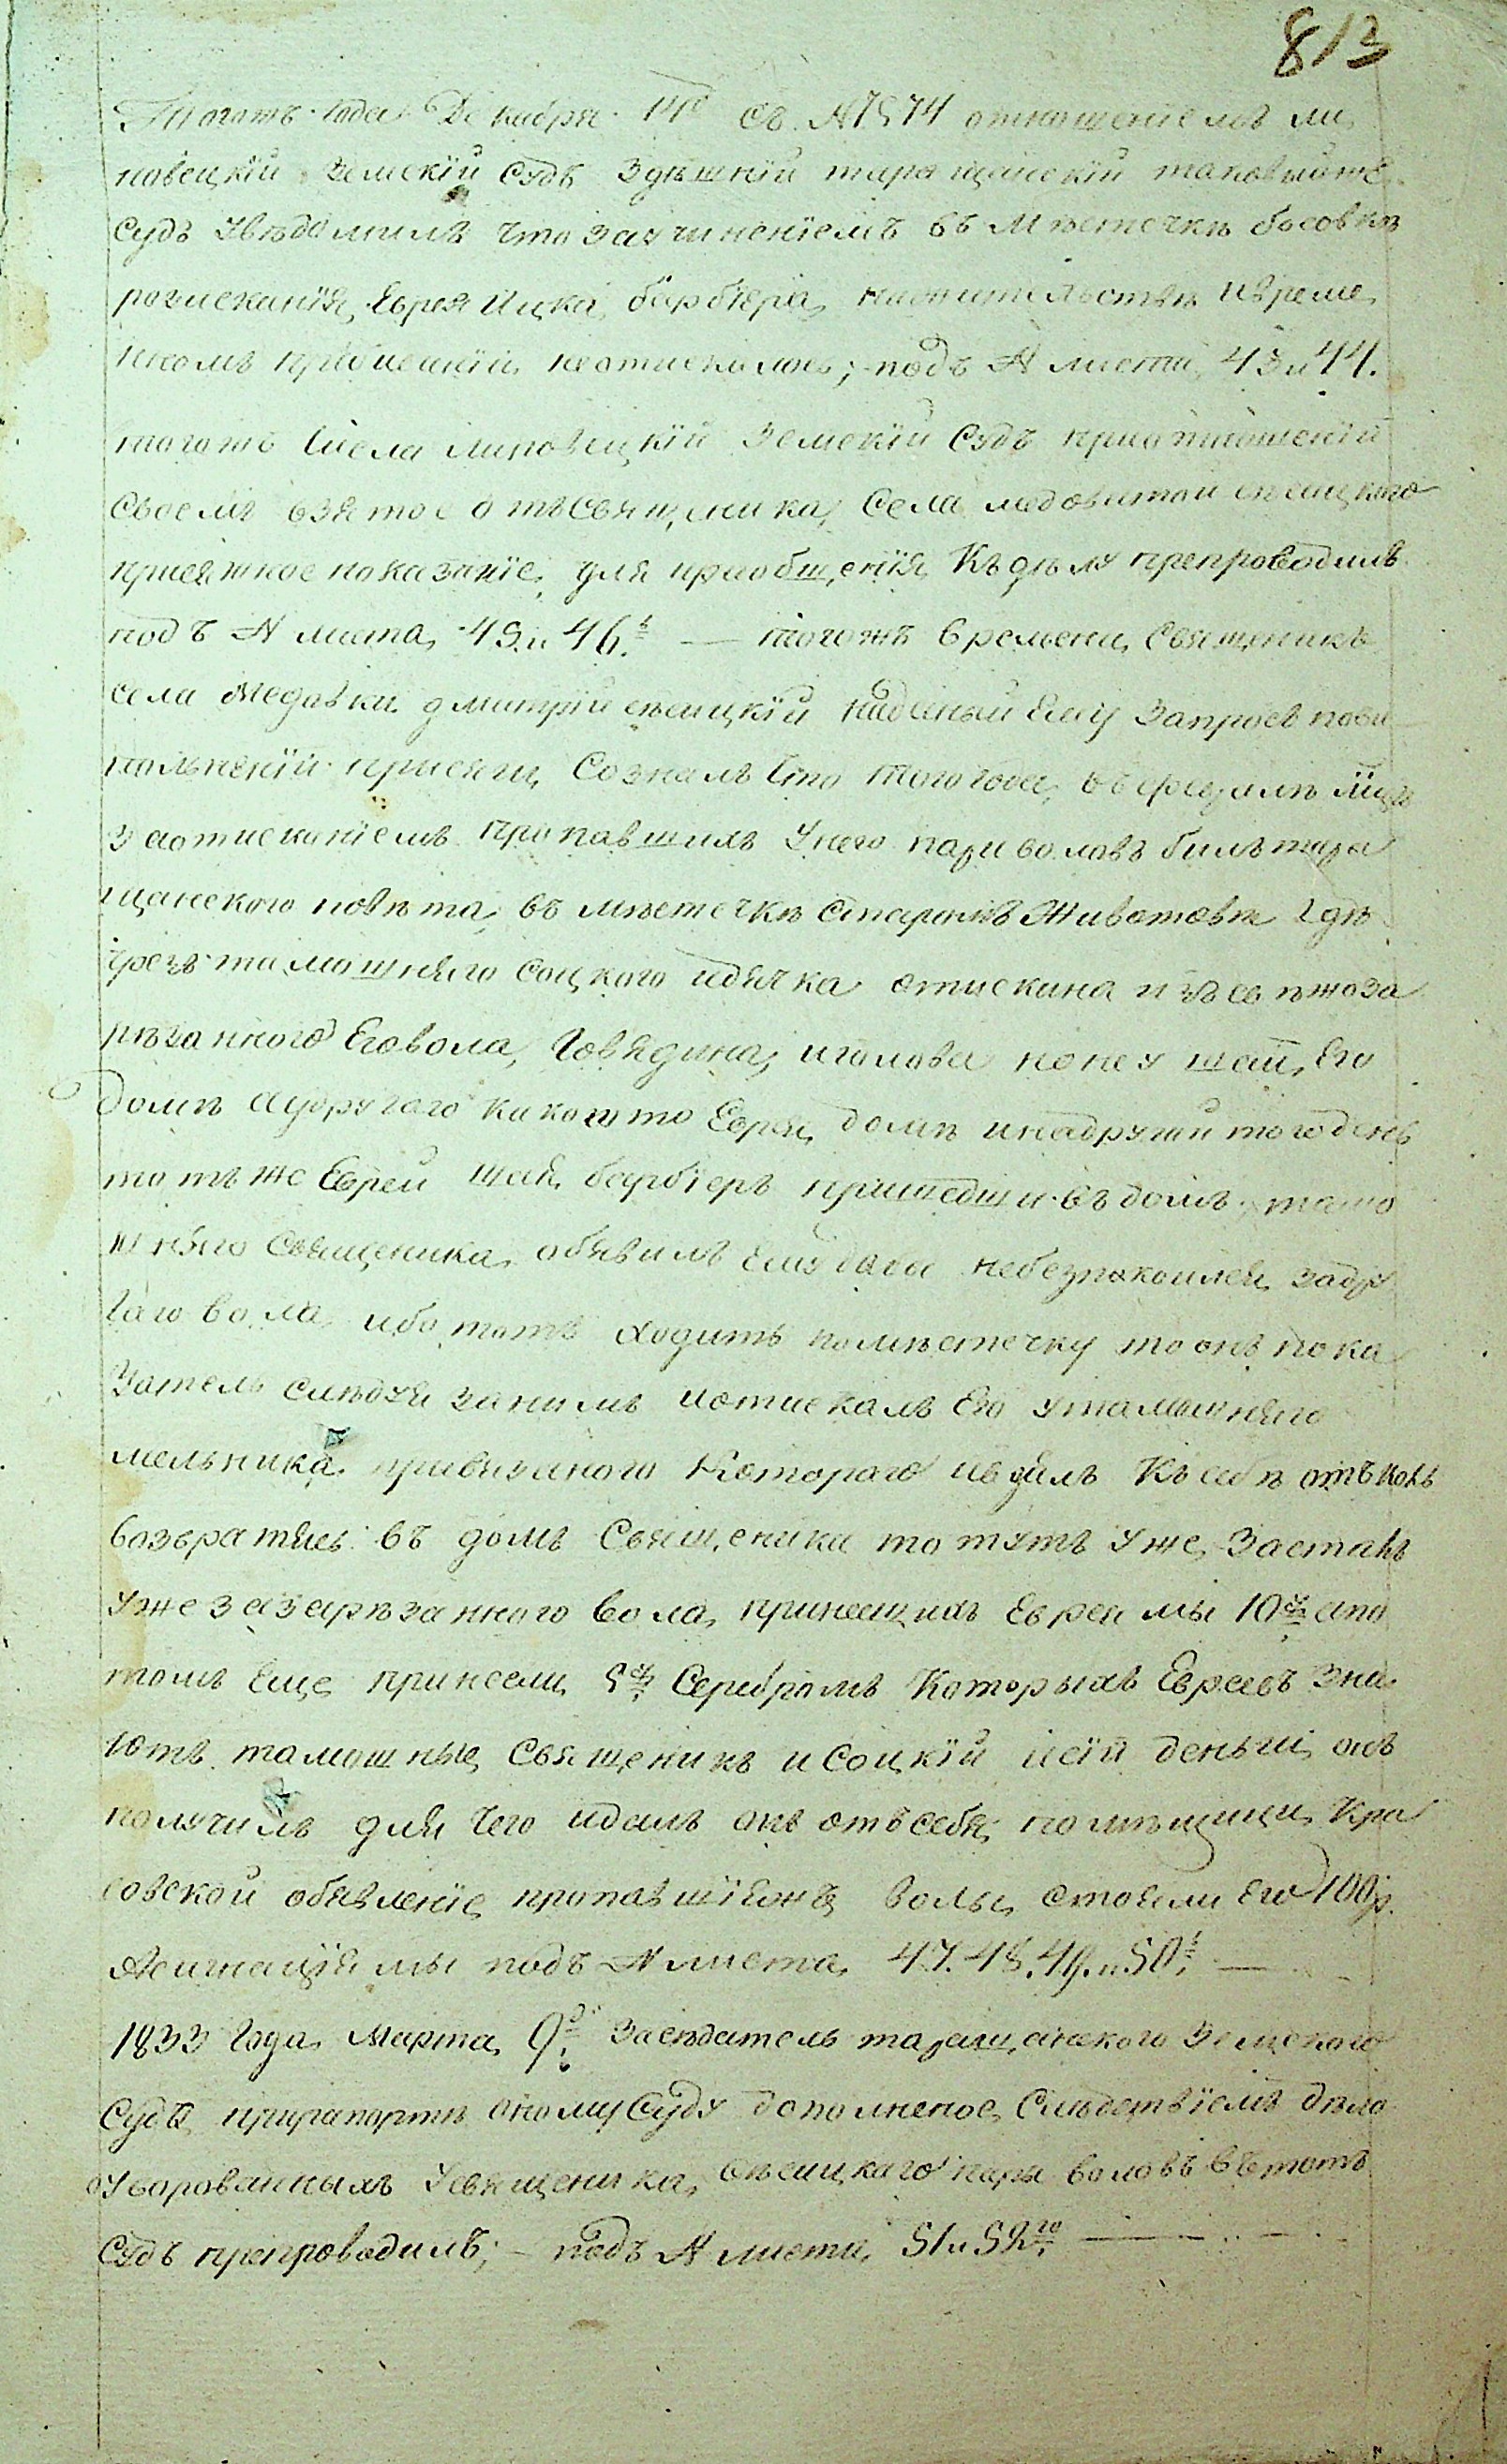 813
Тогожъ года Декабря 14го съ №7574 отношениемъ ли
повецкій земскій судъ здѣшній таращанскій таковыйже
судъ увѣдомилъ что заучиненіемъ въ Мѣстечкѣ босовкѣ
розисканія, Еврея Ицка барбіера, нажительствѣ ивреме
нномъ пребиваніи, неотискалось; подъ № листа, 43 и 44.
тогожъ Числа липовецкій Земскій Судъ приотношеніи
своемъ взятое отъсвящ,еника, Села медоватои сѣлицкого
присяжное показаніе, для приобщ,енія, Къдѣлу препроводилъ
подъ № листа, 45. и 46. — тогожъ времени, Священикъ
села Медовки дмитрій сѣлицкій наданый Ему Запросъ повы
польненіи присяги, Созналъ Что того года,
заотисканіемъ пропавшихъ Унего пари воловъ билъ тара
щанского повѣта, въ мѣстечкѣ Старомъ Животовѣ гдѣ
чрезъ тамошняго соцкого идячка отискана изъсвѣжоза
рѣзанного Еговола, Говядина, иголова
домѣ аудругаго какогото Еврея, домѣ инадругій тогодень
тотъже Еврей шая, барбіеръ пришедши въдомъ тамо
шняго Священика, объявилъ Ему дабы небезпокоился, задру
гаго вола, ибо тотъ ходитъ помѣстечку то онъ пока
Затель слѣдуя занимъ иотискалъ Его утамошняго
мельника привязаного Которого ивзялъ Ксебѣ отъколь
возвратясь въ домъ Свящ,еника то тутъ уже, Засталъ
уже зазарѣзанного вола, принесщихъ Евреямы 10 апо
томъ Еще принесли, 5 Серебромъ Которыхъ Евреевъ Зна
ютъ тамошные, Свящ,еникъ и Соцкій исіи деньги онъ
получилъ для чего идалъ онъ отъсебя, помѣщици, Кра
совской объявленіе, пропавшіеонъ волы, стояли Его 100 р.
Асигнаціямы подъ № листа, 47. 48. 49. и 50. —
1833 Года, Марта, 9. Засѣдатель таращ,анского Земского
Суда, прирапортѣ оному Суду дополненое, Слѣдствіемъ дѣло
оуворованныхъ Усвященика, Сѣлицкаго пари воловъ вътотъ
Судъ препроводилъ; — подъ № листа, 51 и 52го —